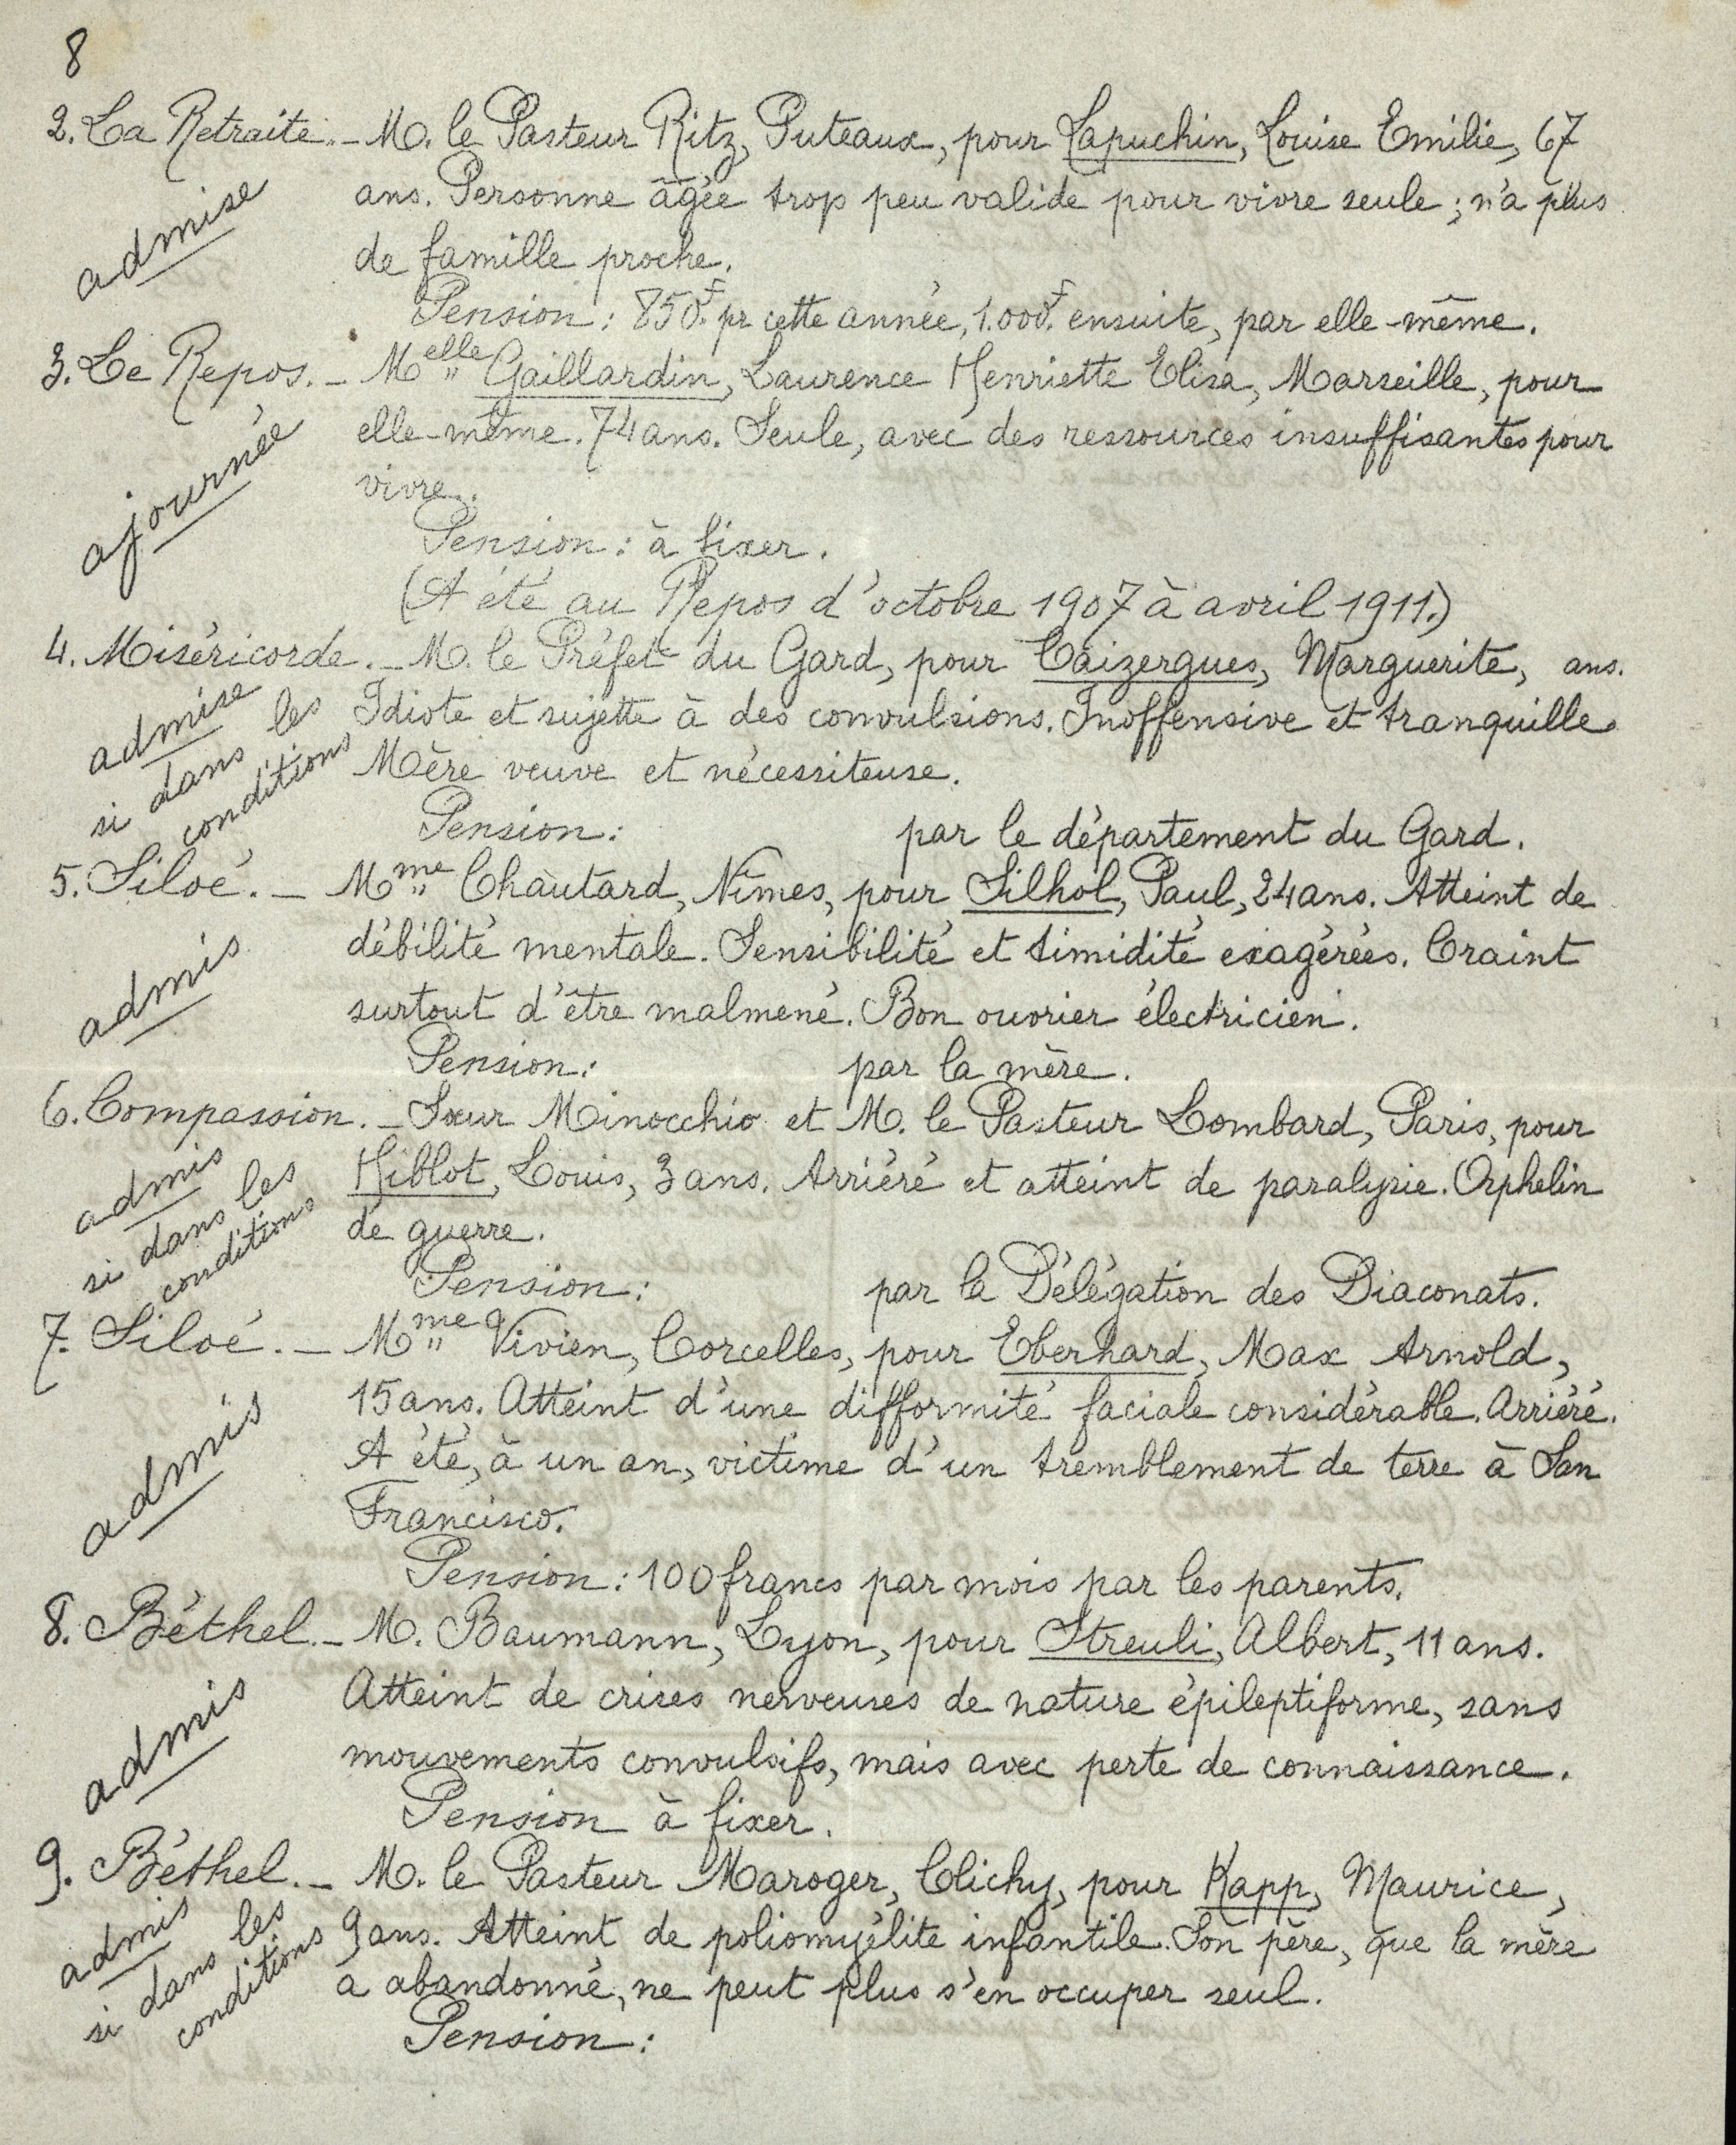 8
2. La Retraite. - M. le Pasteur Ritz, Puteaux, pour Lapuchin, Louise Emilie, 67
admise
ans. Personne âgée trop peu valide pour vivre seule ; n'a plus
de famille proche.
Pension : 850f. pr cette année, 1.000f. ensuite, par elle-même.
3. Le Repos. - Melle Gaillardin, Laurence Henriette Elisa, Marseille, pour
ajournée
elle-même. 74 ans. Seule, avec des ressources insuffisantes pour
vivre.
Pension : à fixer.
(A été au Repos d'octobre 1907 à avril 1911.)
4. Miséricorde. - M. le Préfet du Gard, pour Caizergues, Marguerite, ans.
admise
si dans les
conditions
Idiote et sujette à des convulsions. Inoffensive et tranquille.
Mère veuve et nécessiteuse.
Pension : par le département du Gard.
5. Siloé. - Mme Chautard, Nîmes, pour Silhol, Paul, 24 ans. Atteint de
admis
débilité mentale. Sensibilité et timidité exagérées. Craint
surtout d'être malmené. Bon ouvrier électricien.
Pension : par la mère.
6. Compassion. - Sœur Minocchio et M. le Pasteur Lombard, Paris, pour
admis
si dans les
conditions
Hiblot, Louis, 3 ans. Arriéré et atteint de paralysie. Orphelin
de guerre.
Pension : par la Délégation des Diaconats.
7. Siloé. - Mme Vivien, Corcelles, pour Eberhard, Max Arnold,
admis
15 ans. Atteint d'une difformité faciale considérable. Arriéré.
A été, à un an, victime d'un tremblement de terre à San
Francisco.
Pension : 100 francs par mois par les parents.
8. Béthel. - M. Baumann, Lyon, pour Streuli, Albert, 11 ans.
admis
Atteint de crises nerveuses de nature épileptiforme, sans
mouvements convulsifs, mais avec perte de connaissance.
Pension à fixer.
9. Béthel. - M. le Pasteur Maroger, Clichy, pour Kapp, Maurice,
admis
si dans les
conditions
9 ans. Atteint de poliomyélite infantile. Son père, que la mère
a abandonné, ne peut plus s'en occuper seul.
Pension :